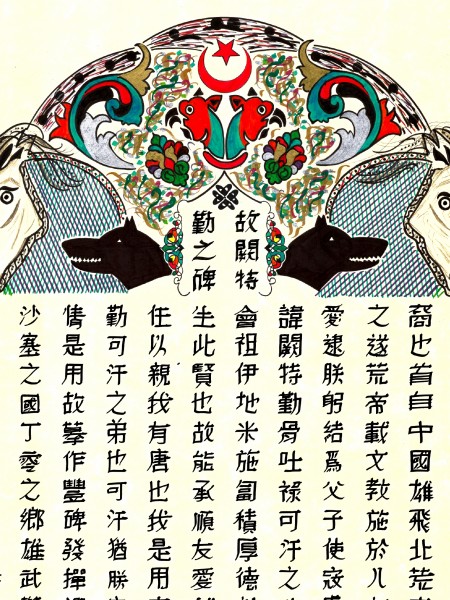 故闕特
勤之碑
裔也首自中國雄飛北荒
之遂荒帝載文教施於八
愛逮朕躬結爲父子使寇
諱闕特勤骨吐祿可汗之
會祖伊地米施匐積厚德
生此賢也故能承順友愛
任以親我有唐也我是用
勤可汗之弟也可汗猶朕
倩是用故墓作豐碑發揮
沙塞之國丁零之鄉雄武鬱